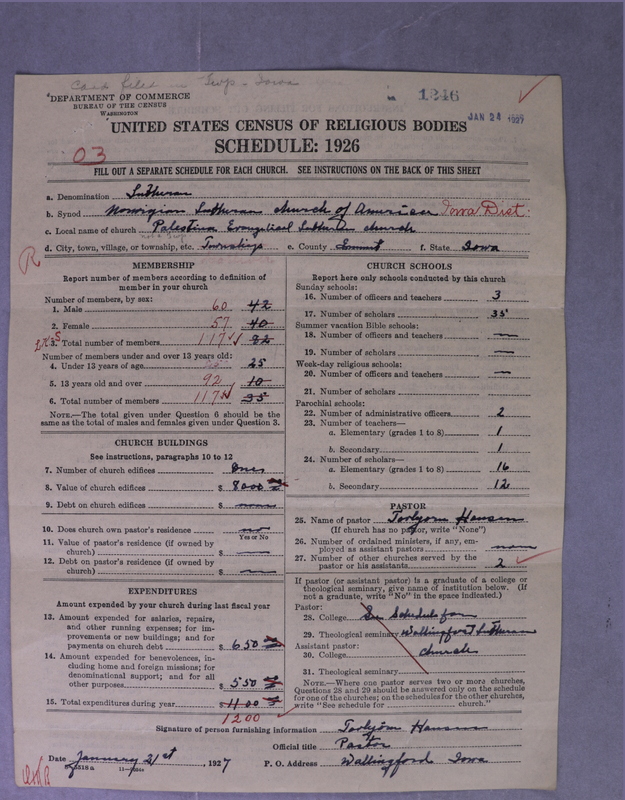 Card filed in Twp - Iowa
DEPARTMENT OF COMMERCE
BUREAU OF THE CENSUS
WASHINGTON
1246
JAN 24 1927
UNITED STATES CENSUS OF RELIGIOUS BODIES
SCHEDULE: 1926
03
FILL OUT A SEPARATE SCHEDULE FOR EACH CHURCH. SEE INSTRUCTIONS ON THE BACK OF THIS SHEET
a. Denomination Lutheran
b. Synod Norwigian Lutheran church of American Iowa Dist.
c. Local name of church Palestina Evangelical Lutheran church
d. City, town, village, or township, etc. Township e. County Emmet f. State Iowa
R
MEMBERSHIP
Report number of members according to definition of member in your church
Number of members, by sex:
1. Male 60 42
2. Female 57 40
3. Total number of members 117 82
Number of members under and over 13 years old:
4. Under 13 years of age 25
5. 13 years old and over 92 10
6. Total number of members 117 35
NOTE.—The total given under Question 6 should be the same as the total of males and females given under Question 3.
CHURCH BUILDINGS
See instructions, paragraphs 10 to 12
7. Number of church edifices One
8. Value of church edifices $ 8000
9. Debt on church edifices $ none
10. Does church own pastor's residence no
Yes or No
11. Value of pastor's residence (if owned by church) $ —
12. Debt on pastor's residence (if owned by church) $ —
EXPENDITURES
Amount expended by your church during last fiscal year
13. Amount expended for salaries, repairs, and other running expenses; for improvements or new buildings; and for payments on church debt $ 650
14. Amount expended for benevolences, including home and foreign missions; for denominational support; and for all other purposes $ 550
15. Total expenditures during year $ 1100
1200
CHURCH SCHOOLS
Report here only schools conducted by this church
Sunday schools:
16. Number of officers and teachers 3
17. Number of scholars 35
Summer vacation Bible schools:
18. Number of officers and teachers —
19. Number of scholars —
Week-day religious schools:
20. Number of officers and teachers —
21. Number of scholars
Parochial schools:
22. Number of administrative officers 2
23. Number of teachers—
a. Elementary (grades 1 to 8) 1
b. Secondary 1
24. Number of scholars—
a. Elementary (grades 1 to 8) 16
b. Secondary 12
PASTOR
25. Name of pastor Torbjorn Hansen
(If church has no pastor, write "None")
26. Number of ordained ministers, if any, employed as assistant pastors none
27. Number of other churches served by the pastor or his assistants 2
If pastor (or assistant pastor) is a graduate of a college or theological seminary, give name of institution below. (If not a graduate, write "No" in the space indicated.)
Pastor:
28. College See Schedule for
29. Theological seminary Wallingford Lutheran
Assistant pastor:
30. College church
31. Theological seminary
NOTE.—Where one pastor serves two or more churches, Questions 28 and 29 should be answered only on the schedule for one of the churches; on the schedules for the other churches, write "See schedule for church."
Signature of person furnishing information Torbjorn Hansen
Official title Pastor
Date January 21st, 1927 P. O. Address Wallingford Iowa